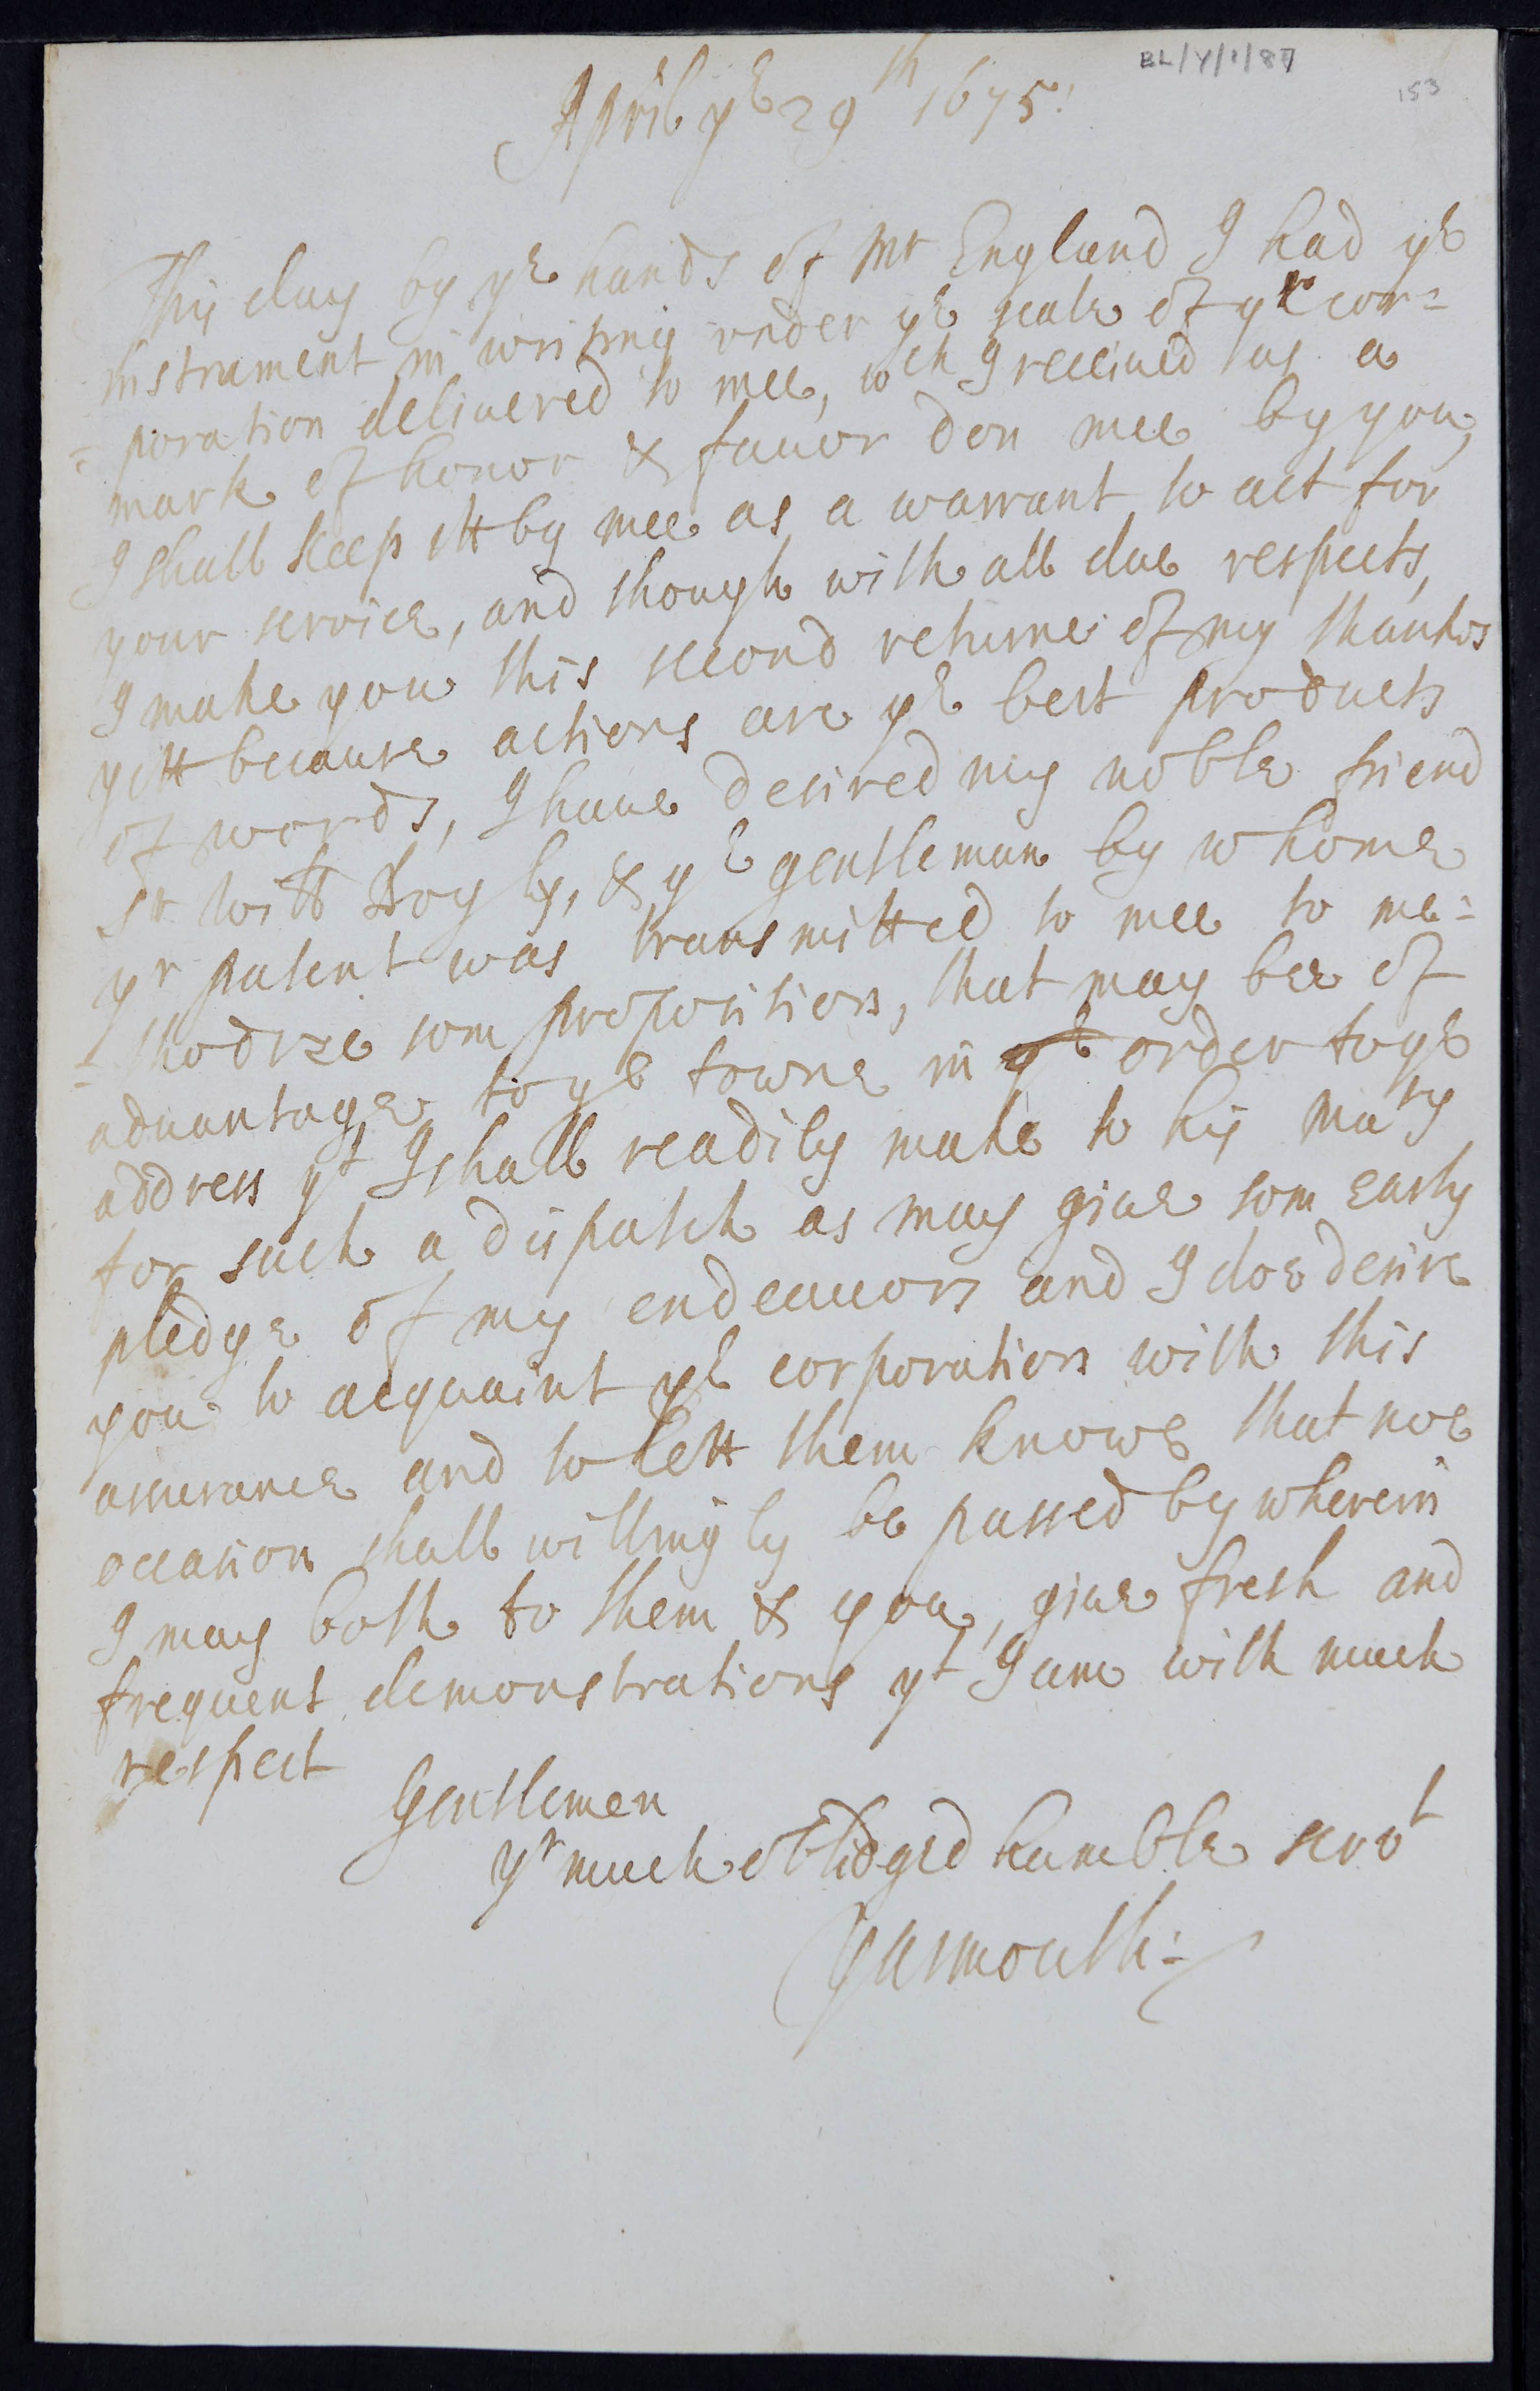 BL/Y/1/87
153
April ye 29th 1675:
This day by ye hands of Mr England I had ye
instrument in writing vnder ye seale of yr cor=
=poration deliuered to mee, wch I receiued as a
mark of honor & fauor don mee by you,
I shall keep itt by mee as a warrant to act for
your service, and though with all due respects,
I make you this second returne of my thanks
yett because actions are ye best products
of words, I haue desired my noble friend
Sr Will Doyly, & ye gentleman by whome
yr patent was transmitted to mee to me=
=thodize som propositions, that may bee of
aduantage to ye towne in ye order to ye
address yt I shall readily make to his Maty
for such a dispatch as may giue som early
pledge of my endeauors and I doe desire
you to acquaint ye corporation with this
assurance and to lett them knowe that noe
occasion shall willingly be passed by wherein
I may both to them & you, giue fresh and
frequent demonstrations yt I am with much
respect
Gentlemen
yr much oblidged humble servt
Yarmouth: